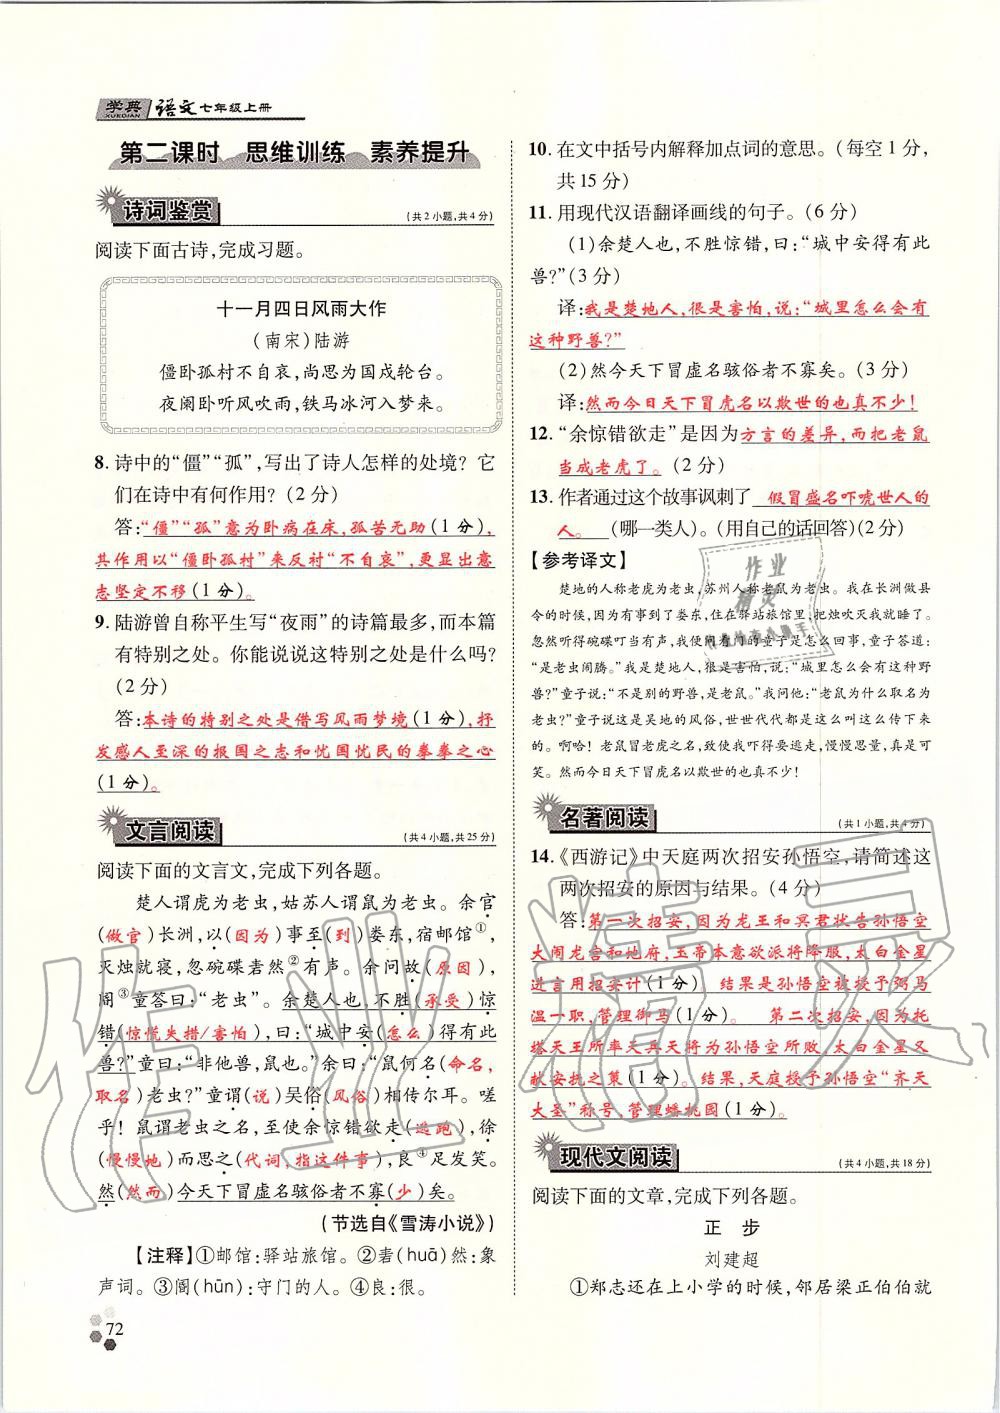 学典
XUEDIAN
语文七年级上册
第二课时 思维训练 素养提升
诗词鉴赏
(共2小题,共4分)
阅读下面古诗,完成习题。
十一月四日风雨大作
(南宋)陆游
僵卧孤村不自哀,尚思为国戍轮台。
夜阑卧听风吹雨,铁马冰河入梦来。
8. 诗中的“僵”“孤”,写出了诗人怎样的处境? 它
们在诗中有何作用? (2分)
答:“僵”“孤”意为卧病在床,孤苦无助(1分),
其作用以“僵卧孤村”来反衬“不自哀”,更显出意
志坚定不移(1分)。
9. 陆游曾自称平生写“夜雨”的诗篇最多,而本篇
有特别之处。你能说说这特别之处是什么吗?
(2分)
答:本诗的特别之处是借写风雨梦境(1分),抒
发感人至深的报国之志和忧国忧民的拳拳之心
(1分)。
文言阅读
(共4小题,共25分)
阅读下面的文言文,完成下列各题。
楚人谓虎为老虫,姑苏人谓鼠为老虫。余官
(做官)长洲,以(因为)事至(到)娄东,宿邮馆①,
灭烛就寝,忽碗碟砉然②有声。余问故(原因),
阍③童答曰:“老虫”。余楚人也,不胜(承受)惊
错(惊慌失措/害怕),曰:“城中安(怎么)得有此
兽?”童曰:“非他兽,鼠也。”余曰:“鼠何名(命名,
取名)老虫?”童谓(说)吴俗(风俗)相传尔耳。嗟
乎! 鼠冒老虎之名,至使余惊错欲走(逃跑),徐
(慢慢地)而思之(代词,指这件事),良④足发笑。
然(然而)今天下冒虚名骇俗者不寡(少)矣。
(节选自《雪涛小说》)
【注释】①邮馆:驿站旅馆。②砉(huā)然:象
声词。③阍(hūn):守门的人。④良:很。
72
10. 在文中括号内解释加点词的意思。(每空1分,
共15分)
11. 用现代汉语翻译画线的句子。(6分)
(1)余楚人也,不胜惊错,曰:“城中安得有此
兽?”(3分)
译:我是楚地人,很是害怕,说:“城里怎么会有
这种野兽?”
(2)然今天下冒虚名骇俗者不寡矣。(3分)
译:然而今日天下冒虎名以欺世的也真不少!
12. “余惊错欲走”是因为方言的差异,而把老鼠
当成老虎了。(2分)
13. 作者通过这个故事讽刺了 假冒盛名吓唬世人的
人。 (哪一类人)。(用自己的话回答)(2分)
【参考译文】
楚地的人称老虎为老虫,苏州人称老鼠为老虫。我在长洲做县
令的时候,因事到了娄东,住在驿站旅馆里,把烛吹灭我就睡了。
忽然听得碗碟叮当有声,我便问看门的童子是怎么回事,童子答道:
“是老虫闹腾。”我是楚地人,很是害怕,说:“城里怎么会有这种野
兽?”童子说:“不是别的野兽,是老鼠。”我问他:“老鼠为什么取名为
老虫?”童子说这是吴地的风俗,世世代代都是这么叫这么传下来
的。啊哈! 老鼠冒老虎之名,致使我吓得要逃走,慢慢思量,真是可
笑。然而今日天下冒虎名以欺世的也真不少!
名著阅读
(共1小题,共4分)
14. 《西游记》中天庭两次招安孙悟空,请简述这
两次招安的原因与结果。(4分)
答:第一次招安,因为龙王和冥君状告孙悟空
大闹龙宫和地府,玉帝本意欲派将降服,太白金星
进言用招安计(1分) 结果是孙悟空被授予弼马
温一职,管理御马(1分)。 第二次招安,因为托
塔天王所率天兵天将为孙悟空所败,太白金星又
献安抚之策(1分)。结果,天庭授予孙悟空“齐天
大圣”称号,管理蟠桃园(1分)。
现代文阅读
(共4小题,共18分)
阅读下面的文章,完成下列各题。
正 步
刘建超
①郑志还在上小学的时候,邻居梁正伯伯就
作业精灵